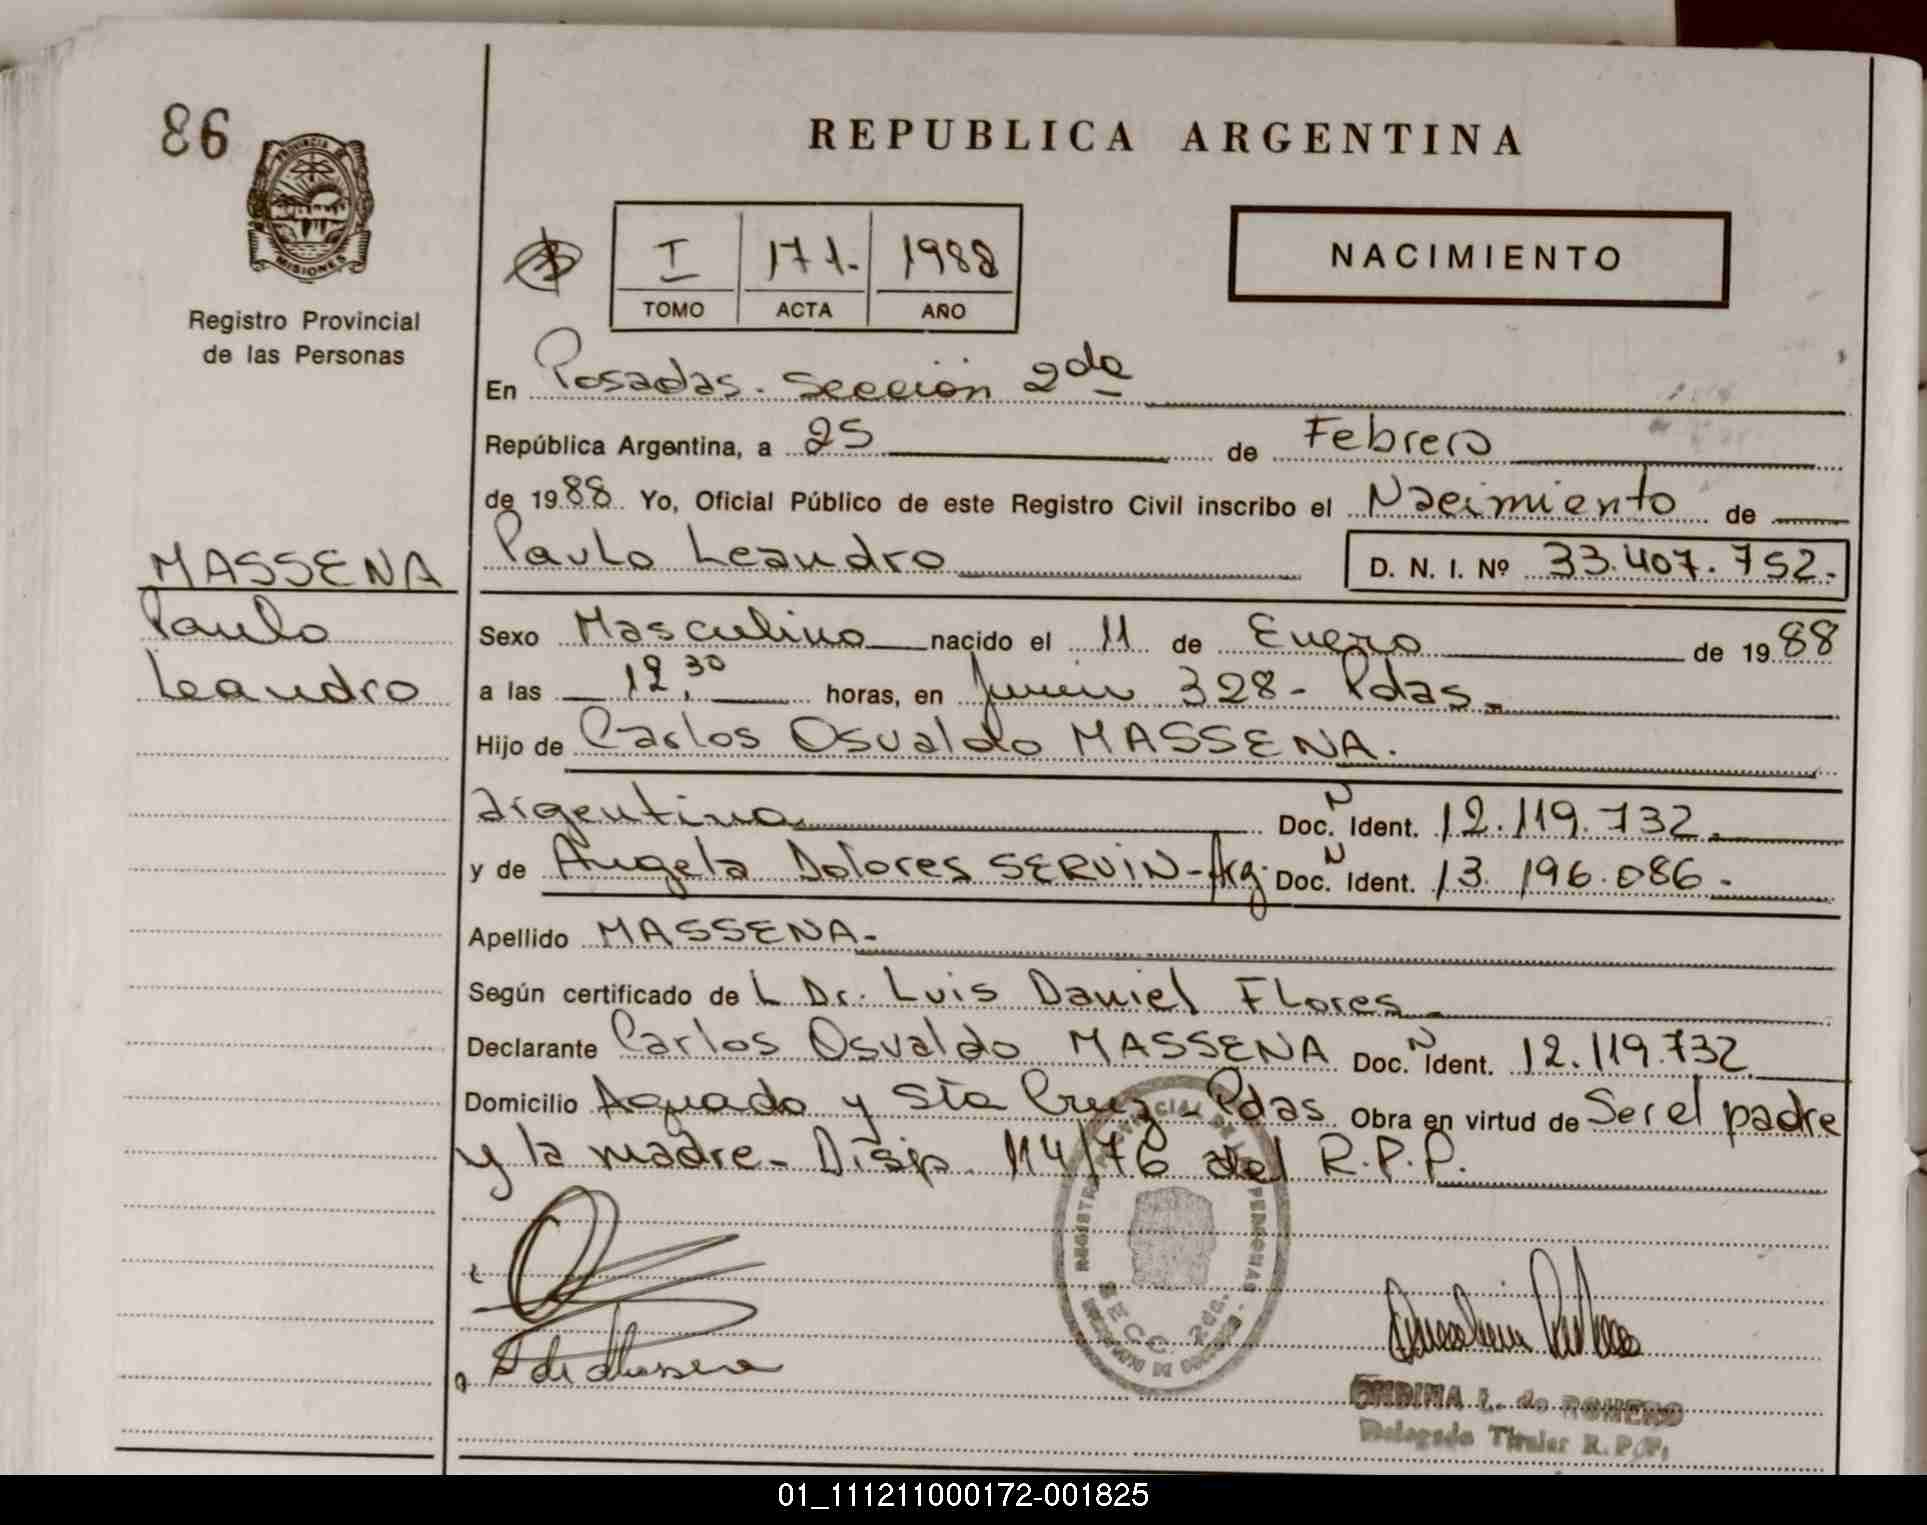 86
PROVINCIA DE
MISIONES
Registro Provincial
de las Personas
REPUBLICA ARGENTINA
I 171. 1988
TOMO ACTA AÑO
NACIMIENTO
En Posadas. Sección 2da
República Argentina, a 25 de Febrero
de 1988 Yo, Oficial Público de este Registro Civil inscribo el Nacimiento de
Paulo Leandro D. N. I. Nº 33.407.752.-
MASSENA
Paulo
Leandro
Sexo Masculino nacido el 11 de Enero de 1988
a las 12,30 horas, en Junín 328- Pdas.
Hijo de Carlos Osvaldo MASSENA.
argentino Doc. N Ident. 12.119.732
y de Angela Dolores SERVIN-Arg. Doc. N Ident. 13.196.086.-
Apellido MASSENA-
Según certificado de L Dr. Luis Daniel Flores
Declarante Carlos Osvaldo MASSENA Doc. N Ident. 12.119.732
Domicilio Aguado y Sta Cruz - Pdas Obra en virtud de Ser el padre
y la madre- Disp. 114/76 del R.P.P.
SECC. 2da.
ONDINA L. de ROMERO
Delegada Titular R.P.P.
01_111211000172-001825